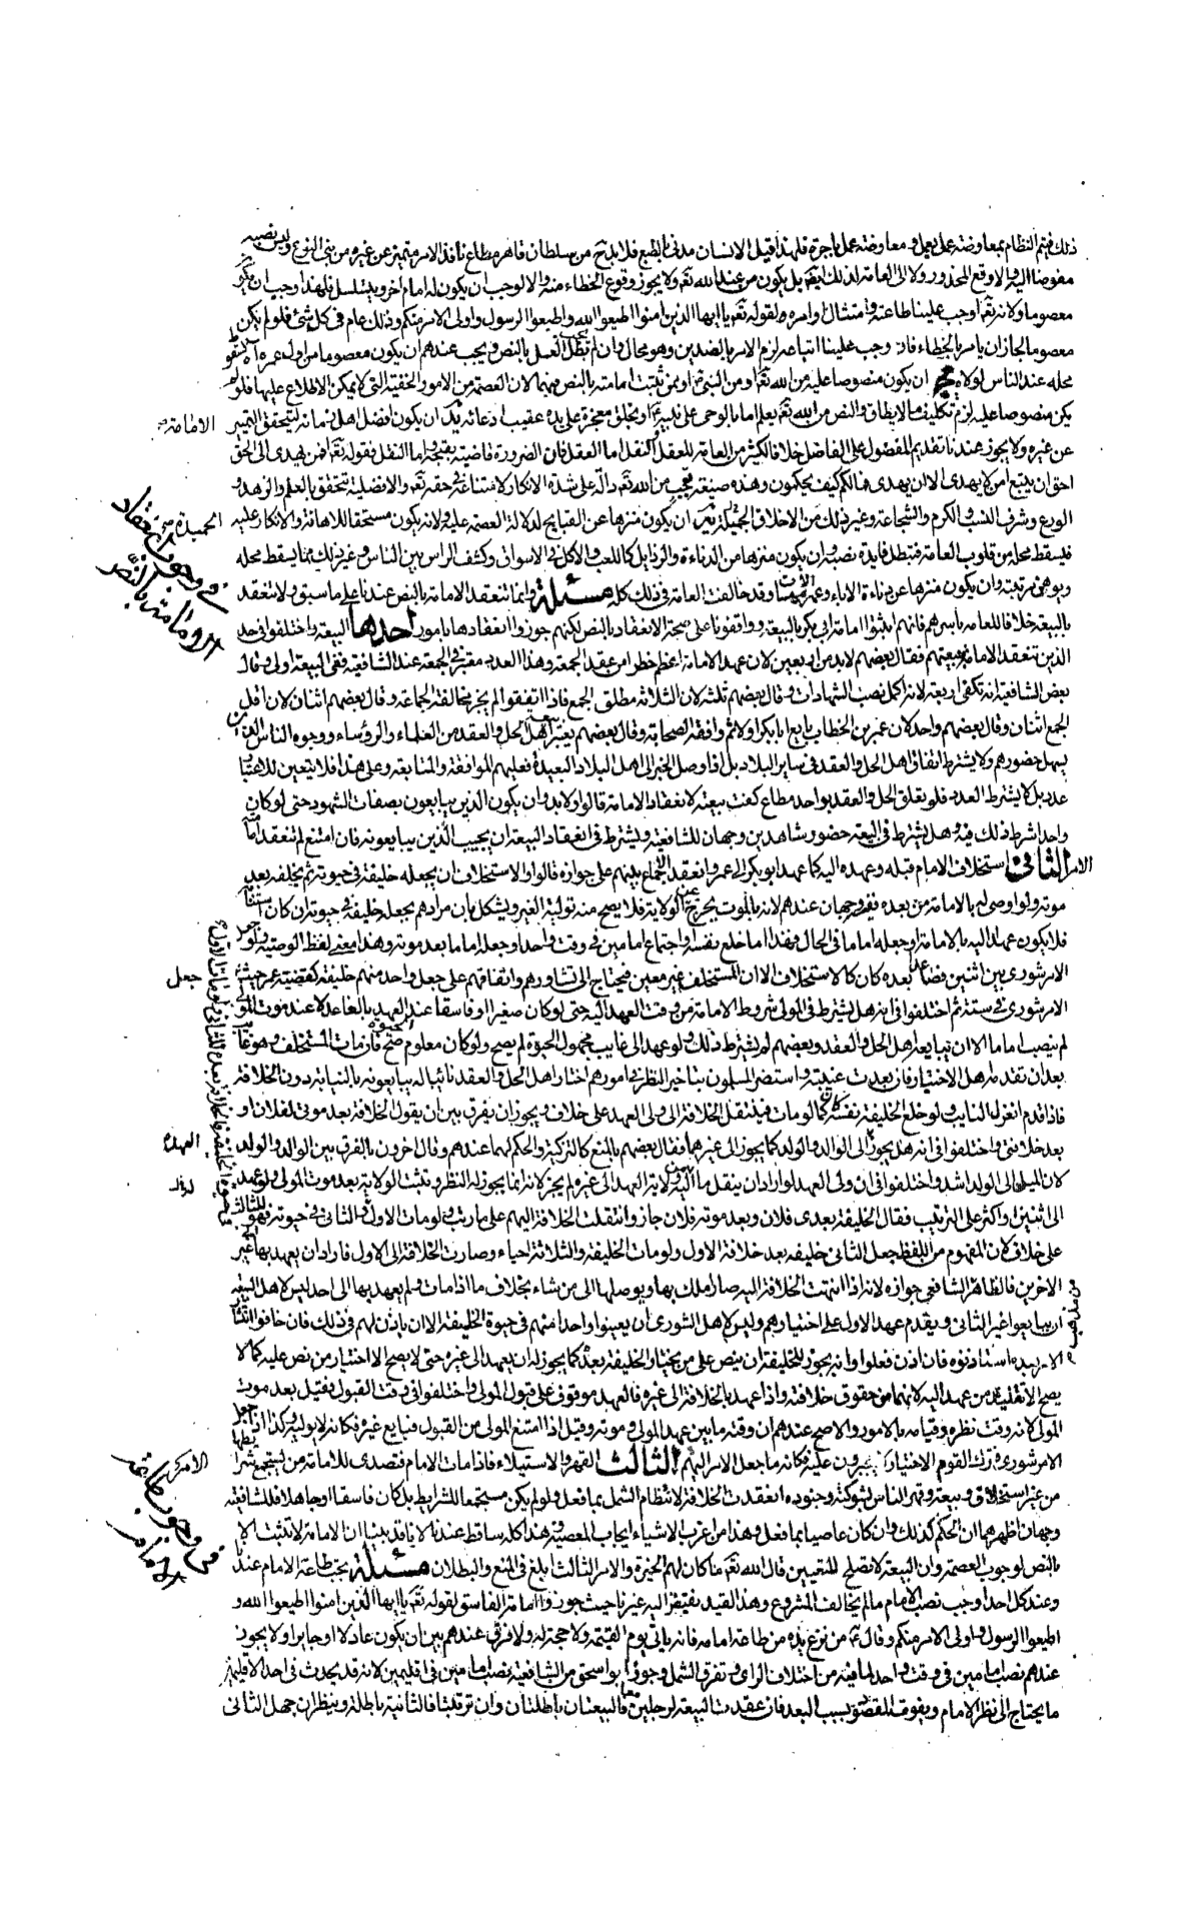 ذلك فيتم النظام بمعاوضة عمل بعمل ومعاوضة عمل باجرة فلهذا قيل الانسان مدني بالطبع فلا بد من سلطان قاهر مطاع نافذ الامر متميز عن غيره من بني النوع وليس نصبه
مفوضا اليهم والا وقع المحذور ولا الى العامة لذلك ايضا بل يكون من عند الله تعالى ولا يجوز وقوع الخطاء منه والا لوجب ان يكون له امام اخر ويتسلسل فلهذا وجب ان يكون
معصوما ولانه تعالى اوجب علينا طاعته وامتثال اوامره لقوله تعالى يا ايها الذين امنوا اطيعوا الله واطيعوا الرسول واولى الامر منكم وذلك عام في كل شئ فلو لم يكن
معصوما لجاز ان يامر بالخطاء فان وجب علينا اتباعه لزم الامر بالضدين وهو محال وان لم يجب بطل العمل بالنص ويجب عندهم ان يكون معصوما من اول عمره الى اخره لسقوط
محله عند الناس لولاه ان يكون منصوصا عليه من الله تعالى او من النبي او ممن ثبتت امامته بالنص منهما لان العصمة من الامور الخفية التي لا يمكن الاطلاع عليها فلو لم
يكن منصوصا عليه لزم تكليف ما لا يطاق والنص من الله تعالى يعلم اما بالوحي على نبيه او بخلق معجزة على يده عقيب ادعائه ان يكون افضل اهل زمانه ليتحقق التميز
عن غيره ولا يجوز عندنا تقديم المفضول على الفاضل خلافا لكثير من العامة للعقل والنقل اما العقل فان الضرورة قاضية بقبحه واما النقل فقوله تعالى افمن يهدى الى الحق
احق ان يتبع امن لا يهدى الا ان يهدى فما لكم كيف تحكمون وهذه صيغة تعجب من الله تعالى دالة على شدة الانكار لامتناعه في حقه تعالى والافضلية تتحقق بالعلم والزهد و
الورع وشرف النسب والكرم والشجاعة وغير ذلك من الاخلاق الجميلة ان يكون منزها عن القبايح لدلالة العصمة عليه ولانه يكون مستحقا للاهانة والانكار عليه
فيسقط محله من قلوب العامة فتبطل فايدة نصبه وان يكون منزها عن الدناءة والرذايل كاللعب والاكل في الاسواق وكشف الراس بين الناس وغير ذلك مما يسقط محله
ويوهن مرتبته وان يكون منزها عن دناءة الاباء وعهر الامهات وقد خالفت العامة في ذلك كله مسئلة وانما تنعقد الامامة بالنص عندنا على ما سبق ولا تنعقد
بالبيعة خلافا للعامة باسرهم فانهم اثبتوا امامة ابي بكر بالبيعة ووافقونا على صحة الانعقاد بالنص لكنهم جوزوا انعقادها بامور احدها البيعة واختلفوا في حد
الذين تنعقد الامامة ببيعتهم فقال بعضهم لا بد من اربعين لان عهد الامامة اعظم خطرا من عقد الجمعة وهذا العدد معتبر في الجمعة عند الشافعية ففي البيعة اولى وقال
بعض الشافعية انه تكفي اربعة لانه اكمل نصب الشهادات وقال بعضهم ثلثة لان الثلاثة مطلق الجمع فاذا اتفقوا لم يجز مخالفة الجماعة وقال بعضهم اثنان لان اقل
الجمع اثنان وقال بعضهم واحد لان عمر بن الخطاب بايع ابا بكر اولا ثم وافقه الصحابة وقال بعضهم يعتبر بيعة اهل الحل والعقد من العلماء والرؤساء ووجوه الناس الذين
يسهل حضورهم ولا يشترط اتفاق اهل الحل والعقد في ساير البلاد بل اذا وصل الخبر الى اهل البلاد البعيدة فعليهم الموافقة والمتابعة وعلى هذا فلا يتعين للاعتبار
عدد بل لا يشترط العدد فلو تعلق الحل والعقد بواحد مطاع كفت بيعته لانعقاد الامامة قالوا ولا بد وان يكون الذين يبايعون بصفات الشهود حتى لو كان
واحدا شرط ذلك فيه وهل يشترط في البيعة حضور شاهدين وجهان للشافعية ويشترط في انعقاد البيعة ان يجيب الذين يبايعونه فان امتنع لم تنعقد امامته
الامر الثاني استخلاف الامام قبله وعهده اليه كما عهد ابو بكر الى عمر وانعقد الاجماع بينهم على جوازه قالوا والاستخلاف ان يجعله خليفة في حيوته ثم يخلفه بعد
موته ولو اوصى له بالامامة من بعده ففيه وجهان عندهم لانه بالموت يخرج عن الولاية فلا يصح منه تولية الغير ويشكل بان مرادهم بجعله خليفة في حيوته ان كان استنابة
فلا يكون عهدا اليه بالامامة او جعله اماما في الحال فهذا اما خلع نفسه او اجتماع امامين في وقت واحد او جعله اماما بعد موته وهذا معنى لفظ الوصية ولو جعل
الامر شورى بين اثنين فصاعدا بعده كان كالاستخلاف الا ان المستخلف غير معين فيحتاج الى تشاورهم واتفاقهم على جعل واحد منهم خليفة كقضية عمر حيث جعل
الامر شورى في ستة ثم اختلفوا في انه هل يشترط في المولى شروط الامامة من وقت العهد اليه حتى لو كان صغيرا او فاسقا عند العهد بالغا عدلا عند موت المولى
لم ينصب اماما الا ان يبايعه اهل الحل والعقد وبعضهم لم يشترط ذلك ولو عهد الى غايب مجهول الحيوة لم يصح ولو كان معلوم الحيوة صح فان مات المستخلف وهو غايب
بعد ان تقدمه اهل الاختيار فان بعدت غيبته واستضر المسلمون بتاخير النظر في امورهم اختار اهل الحل والعقد نائبا له يبايعونه بالنيابة دون الخلافة
فاذا قدم انعزل النايب ولو خلع الخليفة نفسه كان كما لو مات فينتقل الخلافة الى ولى العهد على خلاف ويجوز ان يفرق بين ان يقول الخلافة بعد موتي لفلان او
بعد خلافتي واختلفوا في انه هل يجوز الى الوالد والولد كما يجوز الى غيرهما فقال بعضهم بالمنع كالتزكية والحكم لهما عندهم وقال اخرون بالفرق بين الوالد والولد
لان الميل الى الولد اشد واختلفوا في ان ولى العهد لو اراد ان ينقل ما اليه من ولاية العهد الى غيره لم يجز لانه انما يجوز له النظر وتثبت الولاية بعد موت المولى ولو عهد
الى اثنين او اكثر على الترتيب فقال الخليفة بعدى فلان وبعد موته فلان جاز وانتقلت الخلافة اليهم على ما رتب ولو مات الاول والثاني في حيوته فهو للثالث
على خلاف لان المفهوم من اللفظ جعل الثاني خليفه بعد خلافة الاول ولو مات الخليفة والثلاثة احياء وصارت الخلافة الى الاول فاراد ان يعهد بها الى غير
الاخرين فالظاهر من مذهب الشافعي جوازه لانه اذا انتهت الخلافة اليه صار املك بها ويوصلها الى من شاء بخلاف ما اذا مات ولم يعهد بها الى احد ليس لاهل البيعة
ان يبايعوا غير الثاني ويقدم عهد الاول على اختيارهم وليس لاهل الشورى ان يعينوا واحدا منهم في حيوة الخليفة الا ان ياذن لهم في ذلك فان خافوا انتشار
الامر بعده استاذنوه فان اذن فعلوا وانه يجوز للخليفة ان ينص على من يختار الخليفة بعده كما يجوز له ان يعهد الى غيره حتى لا يصح الا اختيار من نص عليه كما لا
يصح الا تقليد من عهد اليه لانهما من حقوق خلافته واذا عهد بالخلافة الى غيره فالعهد موقوف على قبول المولى واختلفوا في وقت القبول فقيل بعد موت
المولى لانه وقت نظره وقيامه بالامور والاصح عندهم ان وقته ما بين عهد المولى وموته وقيل اذا امتنع المولى من القبول فبايع غيره فكانه لا يوليه وكذا اذا جعل
الامر شورى فترك القوم الاختيار لا يجبرون عليه فكانه ما جعل الامر اليهم الثالث القهر والاستيلاء فاذا مات الامام فتصدى للامامة من يستجمع شرايطها
من غير استخلاف وبيعة وقهر الناس بشوكته وجنوده انعقدت الخلافة لانتظام الشمل بما فعل ولو لم يكن مستجمعا للشرايط بل كان فاسقا او جاهلا فللشافعية
وجهان اظهرهما ان الحكم كذلك وان كان عاصيا بما فعل وهذا من اغرب الاشياء ايجاب المعصية وهذا كله ساقط عندنا لانا قد بينا ان الامامة لا تثبت الا
بالنص لوجوب العصمة وان البيعة لا تصلح للتعيين قال الله تعالى ما كان لهم الخيرة والامر الثالث ابلغ في المنع والبطلان مسئلة يجب طاعة الامام عندنا
وعند كل احد اوجب نصب الامام ما لم يخالف المشروع وهذا القيد يفتقر اليه غيرنا حيث جوزوا امامة الفاسق لقوله تعالى يا ايها الذين امنوا اطيعوا الله و
اطيعوا الرسول واولى الامر منكم وقال من نزع يده من طاعة امامه فانه ياتي يوم القيمة ولا حجة له ولا فرق عندهم بين ان يكون عادلا او جايرا ولا يجوز
عندهم نصب امامين في وقت واحد لما فيه من اختلاف الراى وتفرق الشمل وجوز ابو اسحق من الشافعية نصب امامين في اقليمين لانه قد يحدث في احد الاقليمين
ما يحتاج الى نظر الامام ويفوت المقصود بسبب البعد فان عقدت البيعة لرجلين معا فالبيعتان باطلتان وان ترتبتا فالثانية باطلة وينظر ان جهل الثاني
الامامة
الحميدة
في وجوب انعقاد
الامامة بالنص
جعل
العهدة
الامر
في وجوب طاعة
الامام
من مذهب